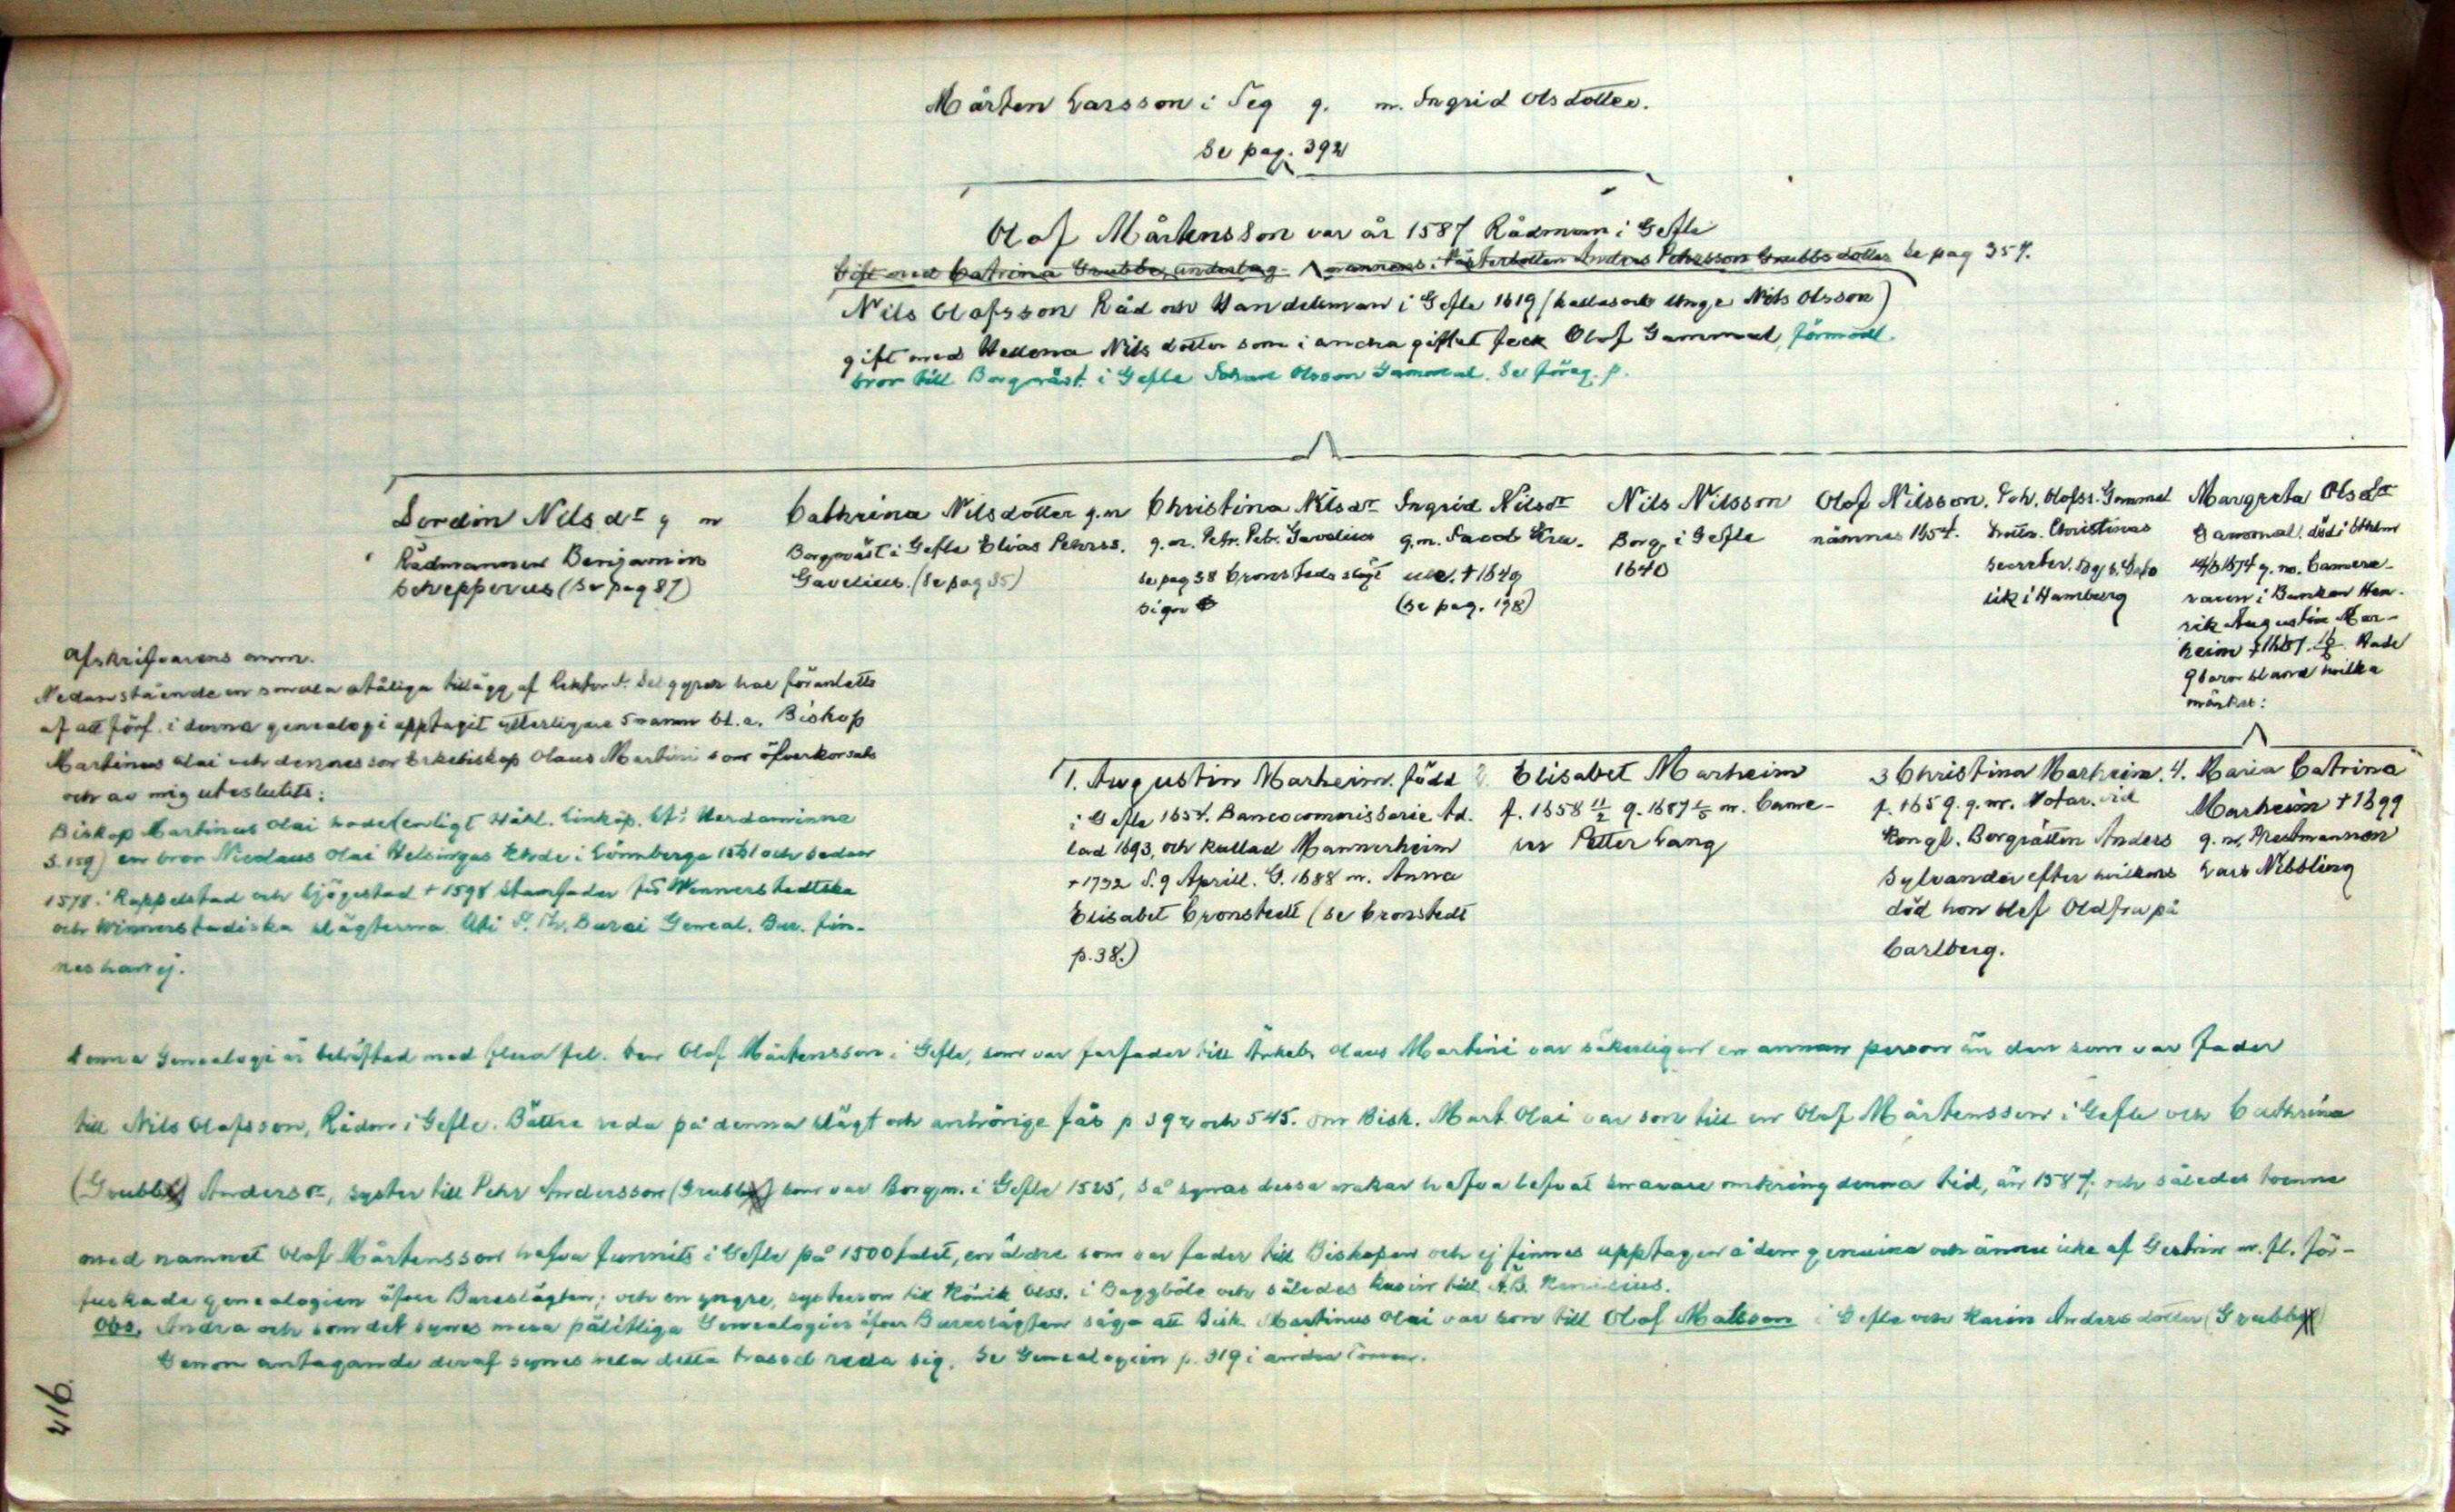 Mårten Larsson i Teg g. m. Ingrid Olsdotter.
Se pag. 392
Olof Mårtensson var år 1587 Rådman i Gefle
Gift med Catrina Grubbe, underlag- mannens i Västerbotten Anders Pehrsson Grubbs dotter Se pag 357.
Nils Olofsson Råd och Handelsman i Gefle 1619 (kallas ock Unge Nils Olsson)
gift med Hellena Nils dotter som i andra giftet feck Olof Gammal, förmodl.
bror till Borgmäst. i Gefle Johan Olsson Gammal. Se föreg. p.
Dordin Nils dr g m
Rådmannen Benjamin
Schepperus (Se pag 87)
Cathrina Nilsdotter g.m
Borgmäst i Gefle Elias Pehrss.
Gavelius. (Se pag 35)
Christina Nilsdr
g. m. Petr. Petr. Gavelius
se pag 38 Cronstedts slägt
Sign
Ingrid Nilsdr
g.m. Jacob Gru-
(se pag. 198)
Nils Nilsson
Borg. i Gefle
1640
Olof Nilsson.
nämnes 1654.
Joh. Olofss. Gammal
Drottn. Christinas
Secreter.
lik i Hamburg
Margreta Olsdr
Gammal. död i Sthlm
g. m. Camere-
raren i Banken Hen-
rik Augustin Mar-
heim Hade
9 barn bland hvilka
märkas:
1. Augustin Marheim. född
i Gefle 1654. Bancocommissarie Ad.
lad 1693, och kallad Mannerheim
+1732 d. 9 Aprill. G. 1688 m. Anna
Elisabet Cronstedt (Se Cronstedt
p. 38.)
2. Elisabet Marheim
f. 1658 11/2 g. 1687 m. Came-
rer Petter Lang
3 Christina Marheim.
f. 1659. g. m. Notar. vid
Kongl. Borgrätten Anders
Sylvander efter hvilkens
död hon blef Oldfru på
Carlberg.
4. Maria Catrina
Marheim + 1699
g. m. Prestmannen
Lars Nibbling
Afskrifvarens anm.
Nedanstående en smula otåliga tillägg af Lektor hae föranletts
af att förf. i denna genealogi upptagit ytterligare 5 namn bl. a. Biskop
Martinus Olai och dennes son Erkebiskop Olaus Martini som öfverkorsats
och av mig uteslutits:
Biskop Martinus Olai hade (enligt Håhl. Linköp. St: Herdaminne
S. 159) en bror Nicolaus Olai Helsingus Khde i Lönnberga 1561 och sedan
1578 i Rappestad och Ljögestad + 1598 Stamfader för Wennerstedtska
och Winnerstadiska slägterna. Uti J. Th. Burei Geneal. Bur. fin-
nes han ej.
denna Genealogi är behäftad med flera fel. Den Olof Mårtensson i Gefle, som var farfader till Ärkeb. Olaus Martini var säkerligen en annan person än den som var fader
till Nils Olofsson, Rådm i Gefle. Bättre reda på denna slägt och anhörige fås p 392 och 545. Om Bisk. Mart. Olai var son till en Olof Mårtensson i Gefle och Cathrina
(Grubbe) Andersdr, syster till Pehr Andersson (Grubbe) som var Borgm. i Gefle 1525, så synas dessa makar hafva lefvat snarare omkring denna tid, än 1587, och således tvenne
med namnet Olof Mårtensson hafva funnits i Gefle på 1500 talet, en äldre som var fader till Biskopen och ej finnes upptagen å den genuina och ännu icke af Gestrin m. fl. för-
fuskade genealogien öfver Bureslägten; och en yngre, systerson till Rönik Olss. i Baggböle och således kusin till Ä.B. Kenicius.
Obs. Andra och som det synes mera pålitliga Genealogier öfver Bureslägten säga att Bisk. Martinus Olai var son till Olof Matsson i Gefle och Karin Andersdotter (Grubbe)
Genom antagande deraf synes hela detta trassel reda sig. Se Genealogien p. 319 i andra Tomen.
416